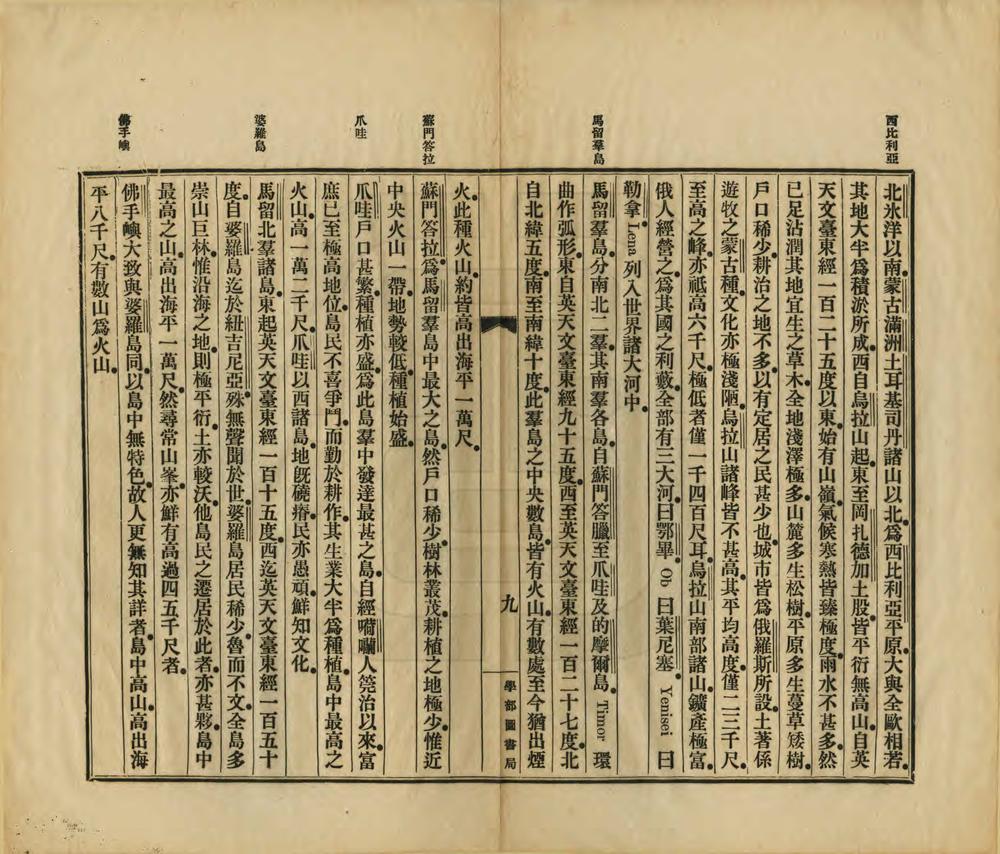 西比利亞
北氷洋以南蒙古滿洲土耳基司丹諸山以北爲西比利亞平原大與全歐相若
其地大半爲積淤所成西自烏拉山起東至岡扎德加土股皆平衍無高山自英
天文臺東經一百二十五度以東始有山嶺氣候寒熱皆臻極度雨水不甚多然
已足沾潤其地宜生之草木全地淺澤極多山麓多生松樹平原多生蔓草矮樹
戶口稀少耕治之地不多以有定居之民甚少也城市皆爲俄羅斯所設土著係
遊牧之蒙古種文化亦極淺陋烏拉山諸峰皆不甚高其平均高度僅二三千尺
至高之峰亦祗高六千尺極低者僅一千四百尺耳烏拉山南部諸山鑛產極富
俄人經營之爲其國之利藪全部有三大河曰鄂畢 Ob 曰葉尼塞 Yenisei 曰
勒拿 Lena 列入世界諸大河中
馬留羣島
馬留羣島分南北二羣其南羣各島自蘇門答臘至爪哇及的摩爾島 Timor 環
曲作弧形東自英天文臺東經九十五度西至英天文臺東經一百二十七度北
自北緯五度南至南緯十度此羣島之中央數島皆有火山有數處至今猶出煙
九
學部圖書局
火此種火山約皆高出海平一萬尺
蘇門答拉
蘇門答拉爲馬留羣島中最大之島然戶口稀少樹林叢茂耕植之地極少惟近
中央火山一帶地勢較低種植始盛
爪哇
爪哇戶口甚繁種植亦盛爲此島羣中發達最甚之島自經嗬囒人筦治以來富
庶已至極高地位島民不喜爭鬥而勤於耕作其生業大半爲種植島中最高之
火山高一萬二千尺爪哇以西諸島地旣磽瘠民亦愚頑鮮知文化
婆羅島
馬留北羣諸島東起英天文臺東經一百十五度西迄英天文臺東經一百五十
度自婆羅島迄於紐吉尼亞殊無聲聞於世婆羅島居民稀少魯而不文全島多
崇山巨林惟沿海之地則極平衍土亦較沃他島民之遷居於此者亦甚夥島中
最高之山高出海平一萬尺然尋常山峯亦鮮有高過四五千尺者
佛手嶼
佛手嶼大致與婆羅島同以島中無特色故人更無知其詳者島中高山高出海
平八千尺有數山爲火山